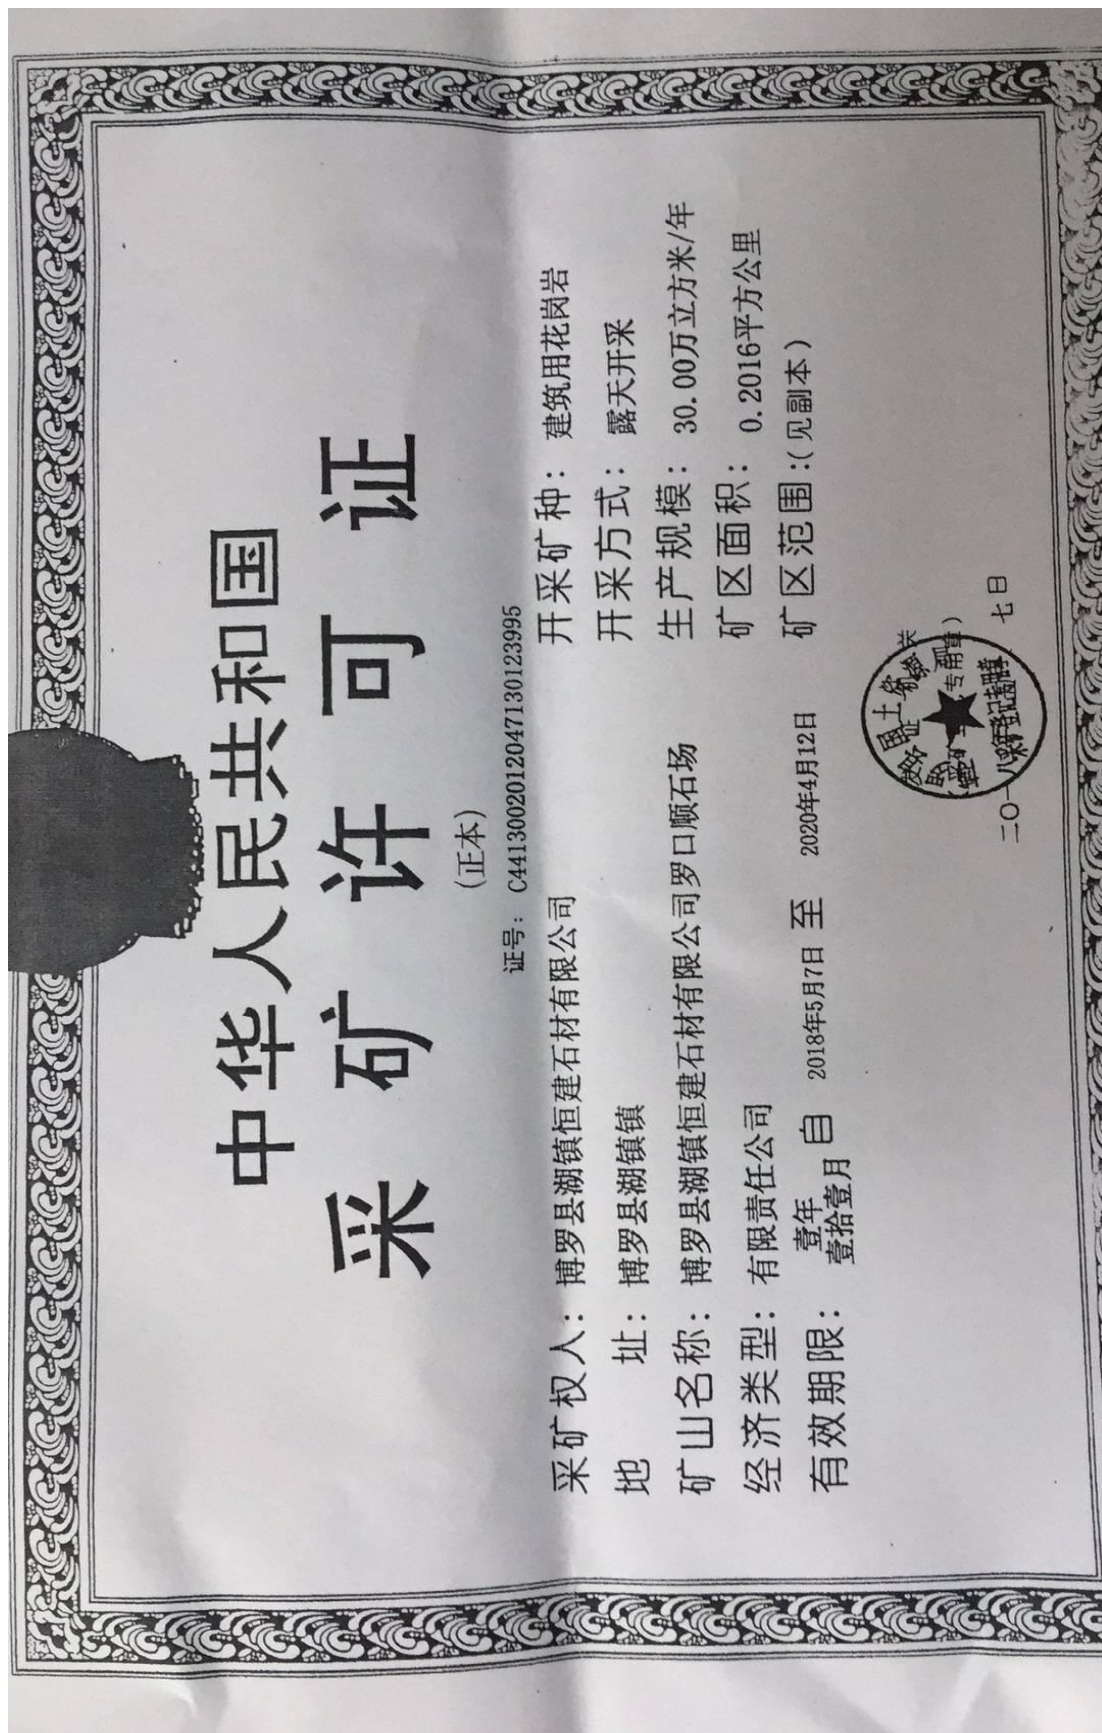 中华人民共和国
采矿许可证
(正本)
证号：C4413002012047130123995
采矿权人：博罗县湖镇恒建石材有限公司
地 址：博罗县湖镇镇
矿山名称：博罗县湖镇恒建石材有限公司罗口顺石场
经济类型：有限责任公司
有效期限：壹年壹拾壹月 自 2018年5月7日 至 2020年4月12日
开采矿种：建筑用花岗岩
开采方式：露天开采
生产规模：30.00万立方米/年
矿区面积：0.2016平方公里
矿区范围：(见副本)
国土资
专用章)
二〇一八
七日